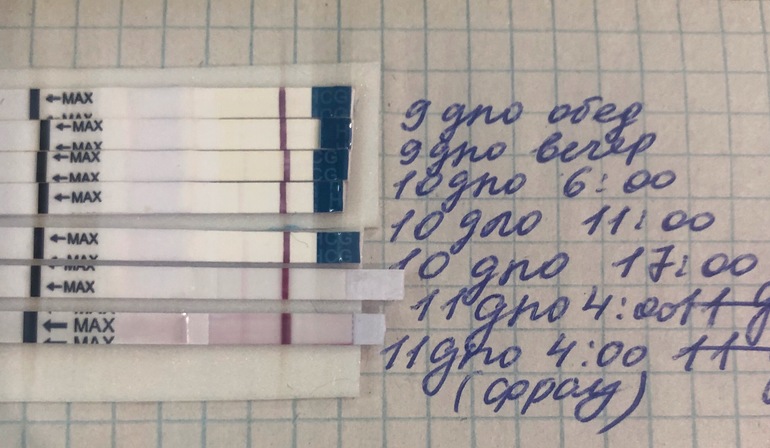 ←MAX
←MAX
←MAX
←MAX
←MAX
←MAX
←MAX
←MAX
←MAX
←MAX
HCG
9 дпо обед
9 дпо вечер
10 дпо 6:00
10 дпо 11:00
10 дпо 17:00
11 дпо 4:00
11 дпо 4:00
(фролу)